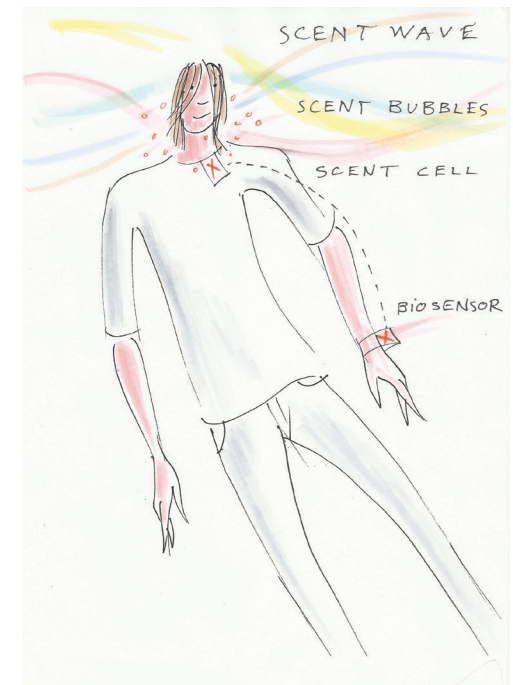 SCENT WAVE
SCENT BUBBLES
SCENT CELL
BIOSENSOR